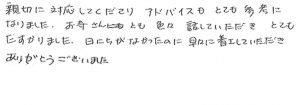 親切に対応してくださり アドバイスも とても 参考に
なりました。お寺さんにもとも 色々 話していただき とても
たすかりました。日にちがなかったのに 早々に着工していただき
ありがとうございました